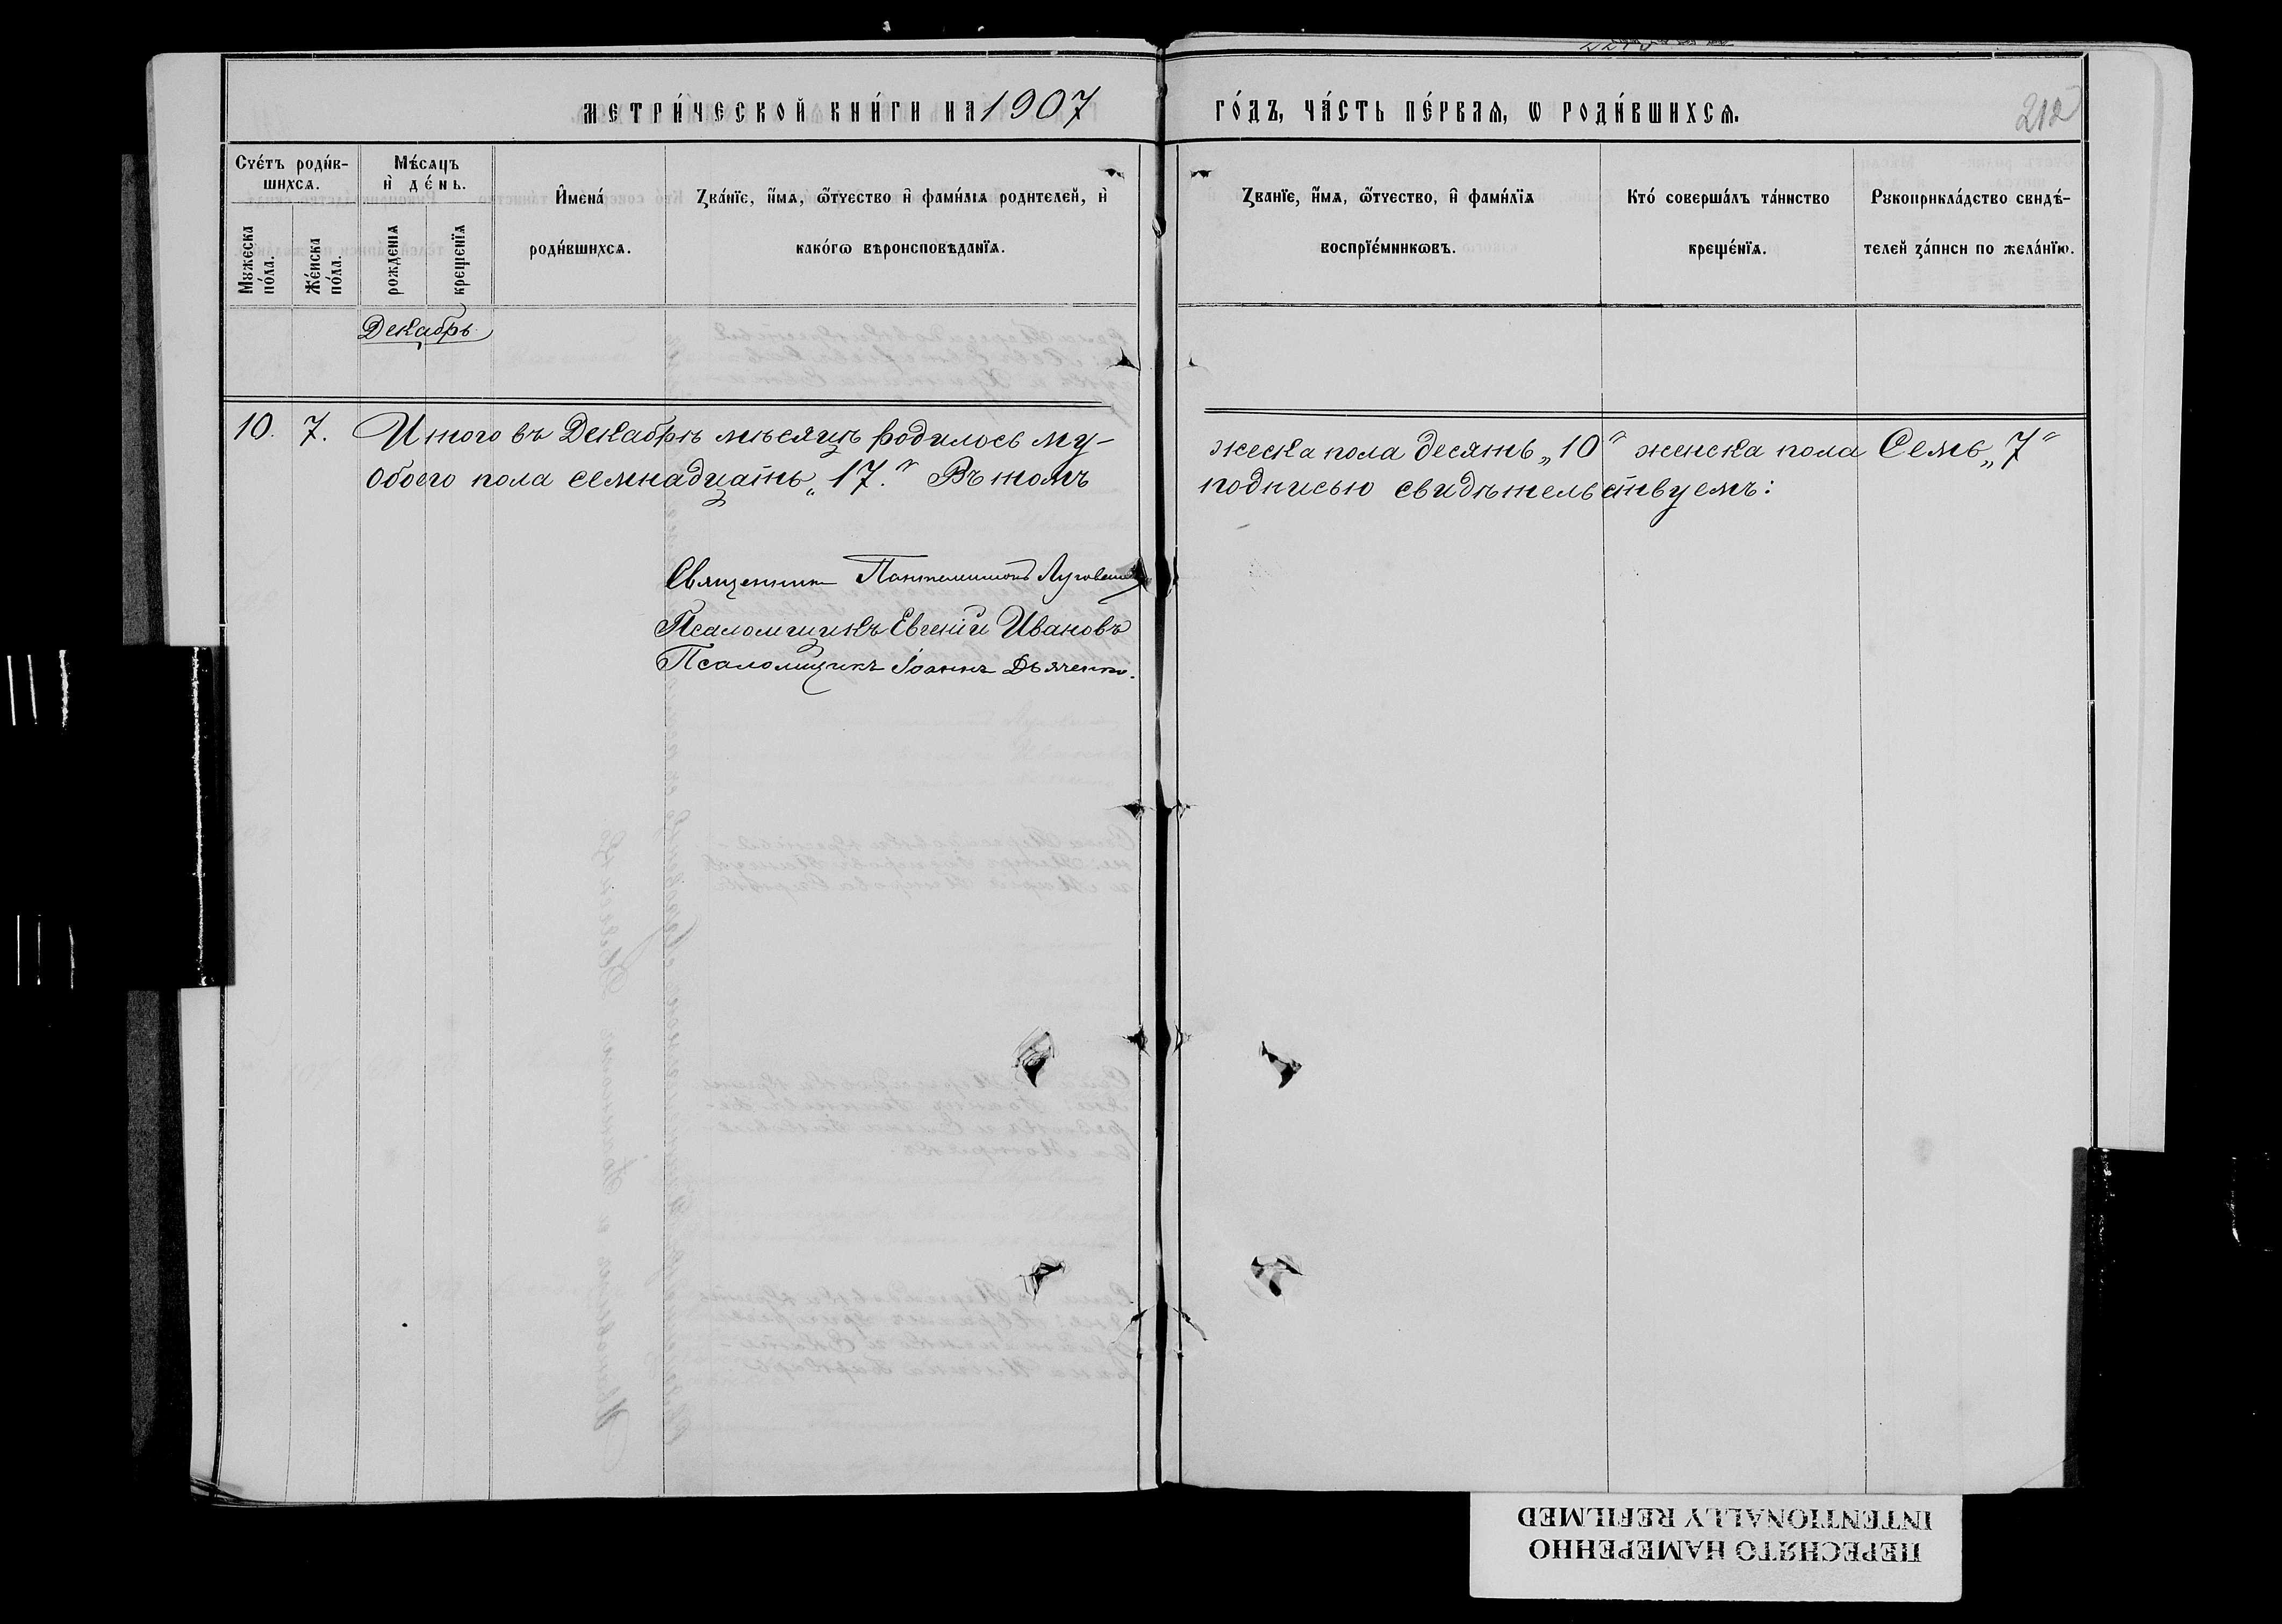 МЕТРИ́ЧЕСКОЙ КНИ́ГИ НА 1907
ГО́ДЪ, ЧА́СТЬ ПЕ́РВАѦ, Ѡ РОДИ́ВШИХСѦ.
212
Сче́тъ роди́в-
шихсѧ.
Мꙋжеска
по́ла.
Же́нска
по́ла.
Мѣ́сѧцъ
и҆ де́нь.
рожденїѧ
крещенїѧ
И҆мена́
роди́вшихсѧ.
Зва́нїе, и҆́мѧ, ѻ҆́тчество и҆ фами́лїѧ родителей, и҆
како́гѡ вѣроисповѣданїѧ.
Званїе, и҆́мѧ, ѻ҆́тчество, и҆ фами́лїѧ
воспрїе́мникѡвъ.
Кто́ соверша́лъ та́инство
креще́нїѧ.
Рꙋкоприкла́дство свидѣ́-
телей за́писи по жела́нїю.
Декабрь
10. 7. Итого въ Декабрѣ мѣсяцѣ родилось му-
жеска пола десять „10“ женска пола Семь „7“
Обоего пола семнадцать „17.“ Въ томъ
подписью свидѣтельствуемъ:
Священник Пантелимонъ
Псаломщикъ Евгеній Ивановъ
Псаломщикъ Іоаннъ Дьяченко.
ПЕРЕСНЯТО НАМЕРЕННО
INTENTIONALLY REFILMED